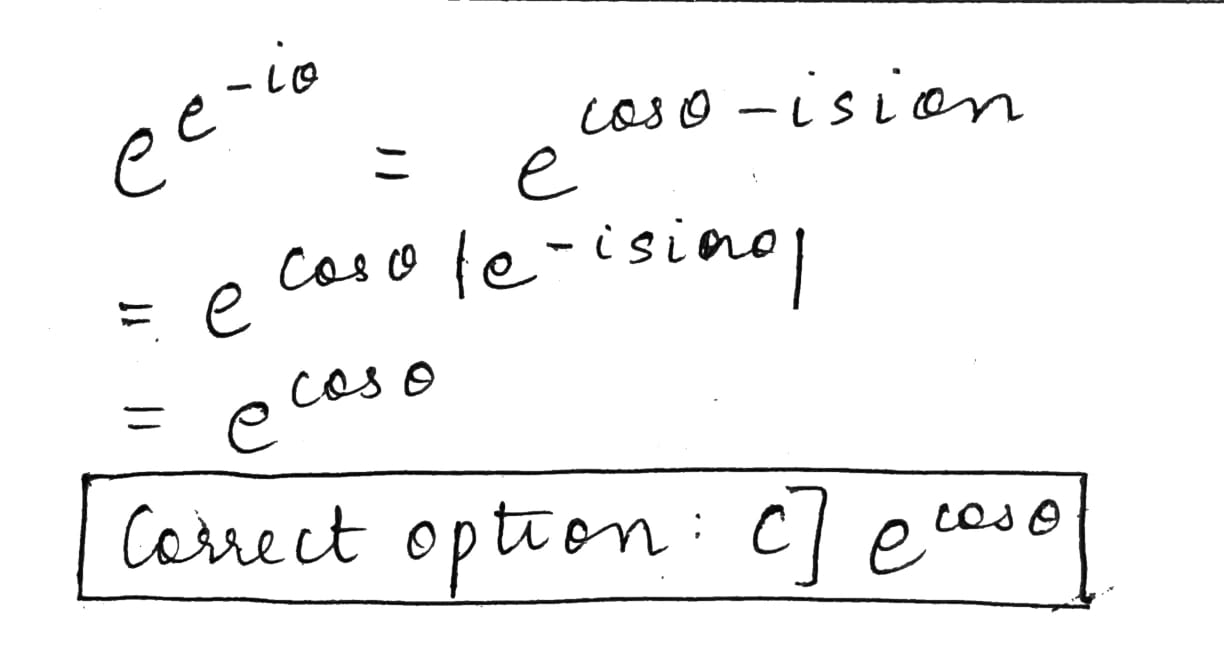 e^{e^{-iθ}} = e^{cosθ - isiθn}
= e^{cosθ} |e^{-isinθ}|
= e^{cosθ}
Correct option: C] e^{cosθ}